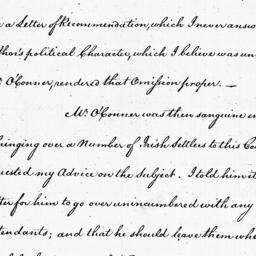 a Letter of Recommendation, which I never answ
thor's political Character, which I believe was un
O'Conner, rendered that Omission proper. —
Mr. O'Conner was then sanguine in
bringing over a Number of Irish Settlers to this Co
uested my Advice on the Subject. I told him it
ter for him to go over unincumbered with any
tendants; and that he should leave them whe